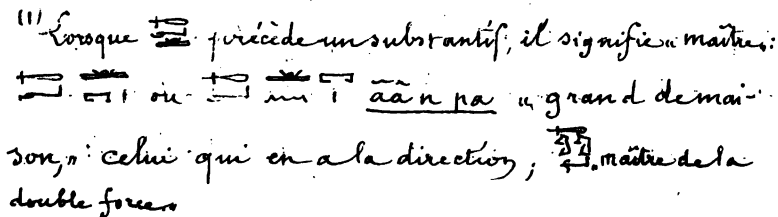 (1) Lorsque précède un substantif, il signifie « maître » :
ou āān pa « grand de mai-
son, » celui qui en a la direction ; maître de la
double force.